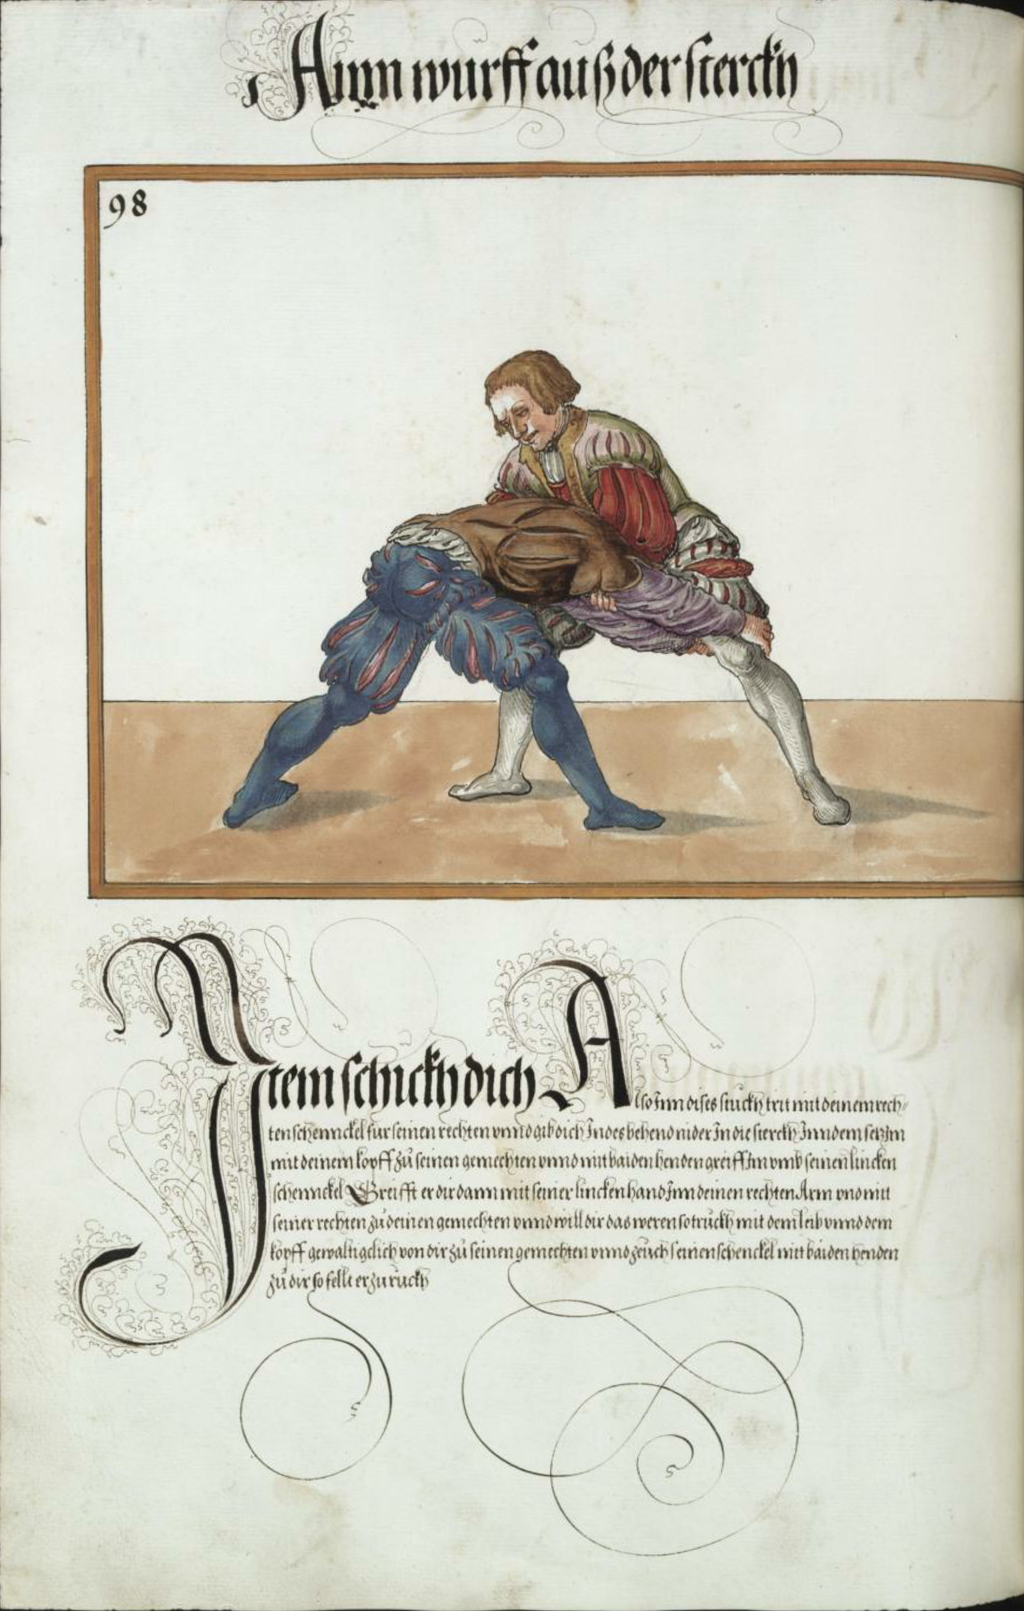 Ainn wurff auß der sterckh
98
Item schickh dich Also Inn dises stuckh trit mit deinem rech-
ten schennckel für seinen rechten vnnd gib dich Indes behend nider In die sterckh Inn dem setz Im
mit deinem kopff zů seinen gemechten vnnd mit baiden henden greiff Im vmb seinen lincken
schennckel Greifft er dir dann mit seiner lincken hand Inn deinen rechten Arm vnd mit
seiner rechten zů deinen gemechten vnnd will dir das weren so truckh mit dem leib vnnd dem
kopff gewaltigclich von dir zů seinen gemechten vnnd zeuch seinen schenckel mit baiden henden
zů dir so fellt er zu ruckh